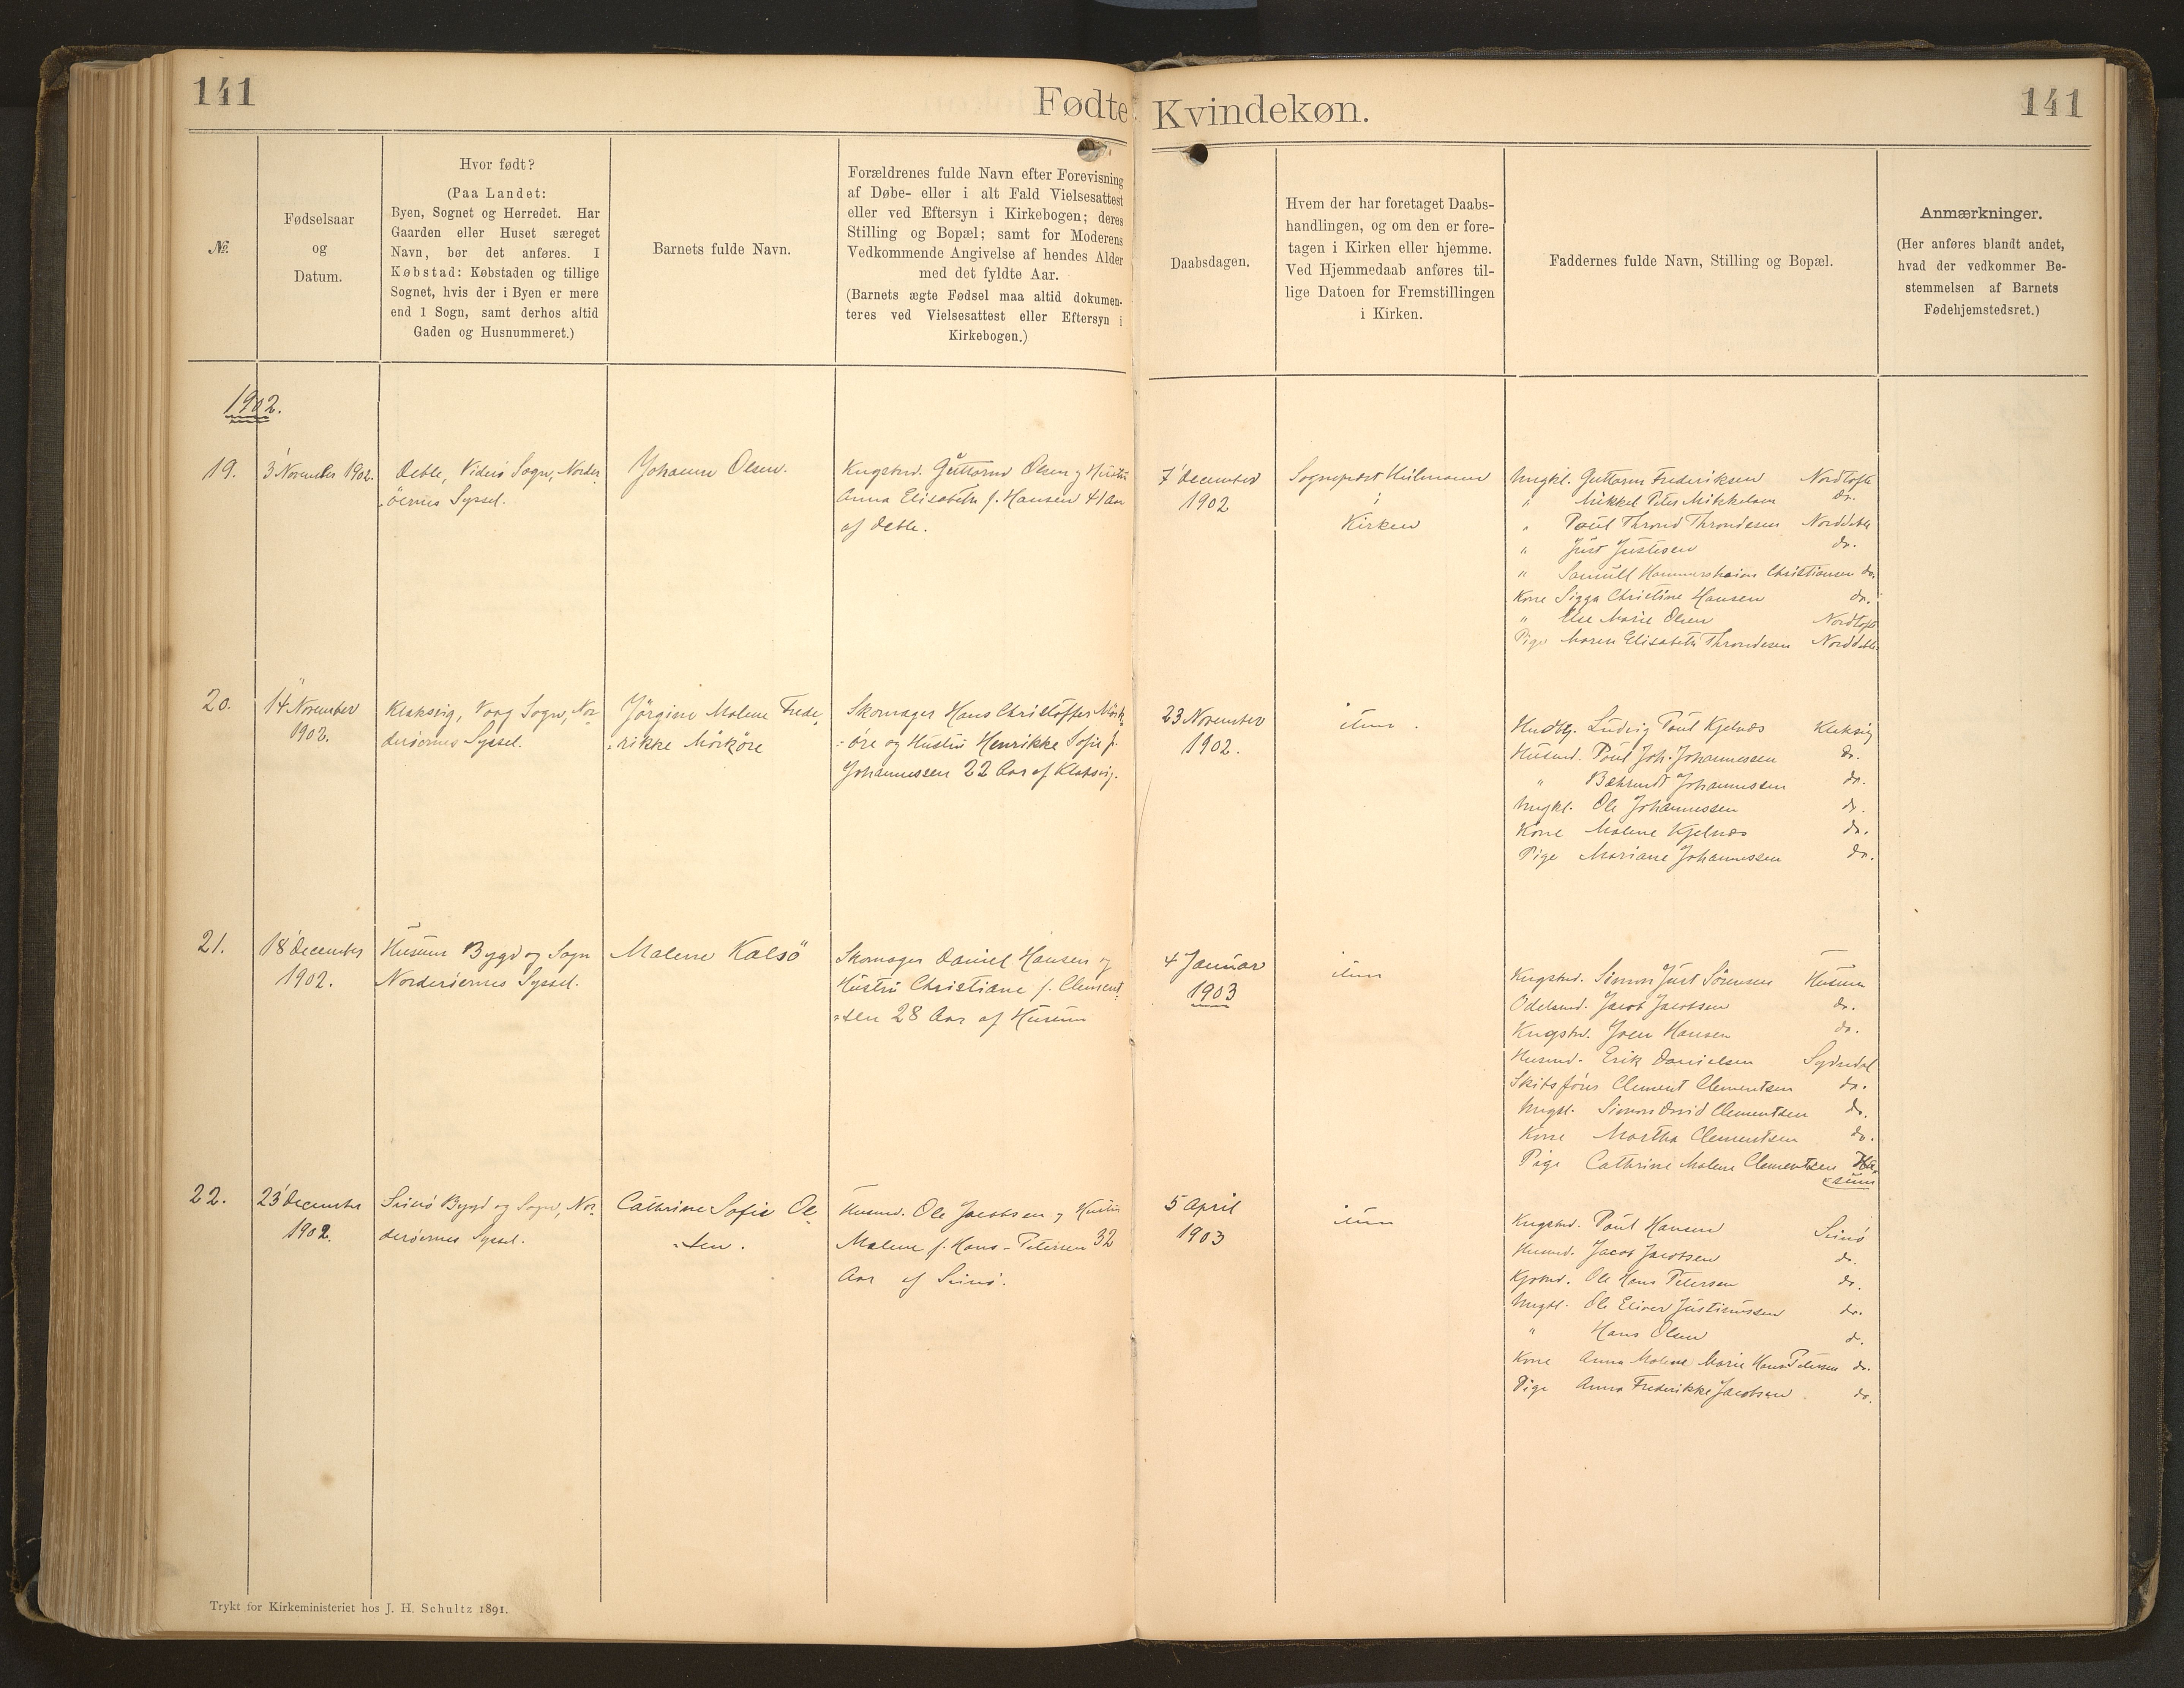 141
Fødte Kvindekøn.
141
№.
Fødselsaar
og
Datum.
Hvor født?
(Paa Landet:
Byen, Sognet og Herredet. Har
Gaarden eller Huset særeget
Navn, bør det anføres. I
Købstad: Købstaden og tillige
Sognet, hvis der i Byen er mere
end 1 Sogn, samt derhos altid
Gaden og Husnummeret.)
Barnets fulde Navn.
Forældrenes fulde Navn efter Forevisning
af Døbe- eller i alt Fald Vielsesattest
eller ved Eftersyn i Kirkebogen; deres
Stilling og Bopæl; samt for Moderens
Vedkommende Angivelse af hendes Alder
med det fyldte Aar.
(Barnets ægte Fødsel maa altid dokumen-
teres ved Vielsesattest eller Eftersyn i
Kirkebogen.)
Daabsdagen.
Hvem der har foretaget Daabs-
handlingen, og om den er fore-
tagen i Kirken eller hjemme.
Ved Hjemmedaab anføres til-
lige Datoen for Fremstillingen
i Kirken.
Faddernes fulde Navn, Stilling og Bopæl.
Anmærkninger.
(Her anføres blandt andet,
hvad der vedkommer Be-
stemmelsen af Barnets
Fødehjemstedsret.)
1902.
19.
3 November 1902.
Deble, Viderø Sogn, Norder
öernes Syssel.
Johanne Olsen.
Kngstmd. Guttorm Olsen og Hustru
Anna Elisabeth f. Hansen 41 Aar
af Deble.
7 December
1902
Sogneprest Heilmann
i
Kirken
Ungkl. Guttorm Frederiksen Nordtofte
" Mikkel Peter Mikkelsen do.
" Poul Thrond Throndesen Norddeble
" Just Justesen do.
" Samuel Hammershaimb Christiansen do.
Kone Sigga Christine Hansen do.
" Else Marie Olsen Nordtofte
Pige Maren Elisabeth Throndesen Norddeble
20.
14 November
1902.
Klaksvig, Vaag Sogn, Nor
derøernes Syssel.
Jörgine Malene Frede,
rikke Mörköre
Skomager Hans Christoffer Mörk
öre og Hustru Henrikke Sofie f.
Johannessen 22 Aar af Klaksvig.
23 November
1902.
item.
Hndlg. Ludvig Poul Kjelnæs Klaksvig
Husmd. Poul Joh. Johannessen do.
" Behrendt Johannessen do.
Ungkl. Ole Johannessen do.
Kone Malene Kjelnæs do.
Pige Mariane Johannessen do.
21.
18 December
1902.
Husum Bygd og Sogn
Norderöernes Syssel.
Malene Kalsö
Skomager Daniel Hansen og
Hustru Christiane f. Clement
sen 28 Aar af Husum
4 Januar
1903
item
Kngstmd. Simon Just Sörensen Husum
Odelsmd. Jacob Jacobsen do.
Kngstmd. Joen Hansen do.
Husmd. Erik Danielsen Sydredal
Skibsförer Clement Clementsen do.
Ungkl. Simon David Clementsen do.
Kone Martha Clementsen do.
Pige Cathrine Malene Clementsen Hu,
sum
22.
23 December
1902.
Svinö Bygd og Sogn, Nor-
deröernes Syssel.
Cathrine Sofie Ol-
sen.
Husmd. Ole Jacobsen og Hustru
Malene f. Hans-Petersen 32
Aar af Svinö.
5 April
1903
item
Kngstmd. Poul Hansen Svinö
Husmd. Jacob Jacobsen do.
Kjobmd. Ole Hans Petersen do.
Ungkl. Ole Eliver Justinussen do.
" Hans Olsen do.
Kone Anna Malene Marie Hans Petersen do.
Pige Anna Frederikke Jacobsen do.
Trykt for Kirkeministeriet hos J. H. Schultz 1891.